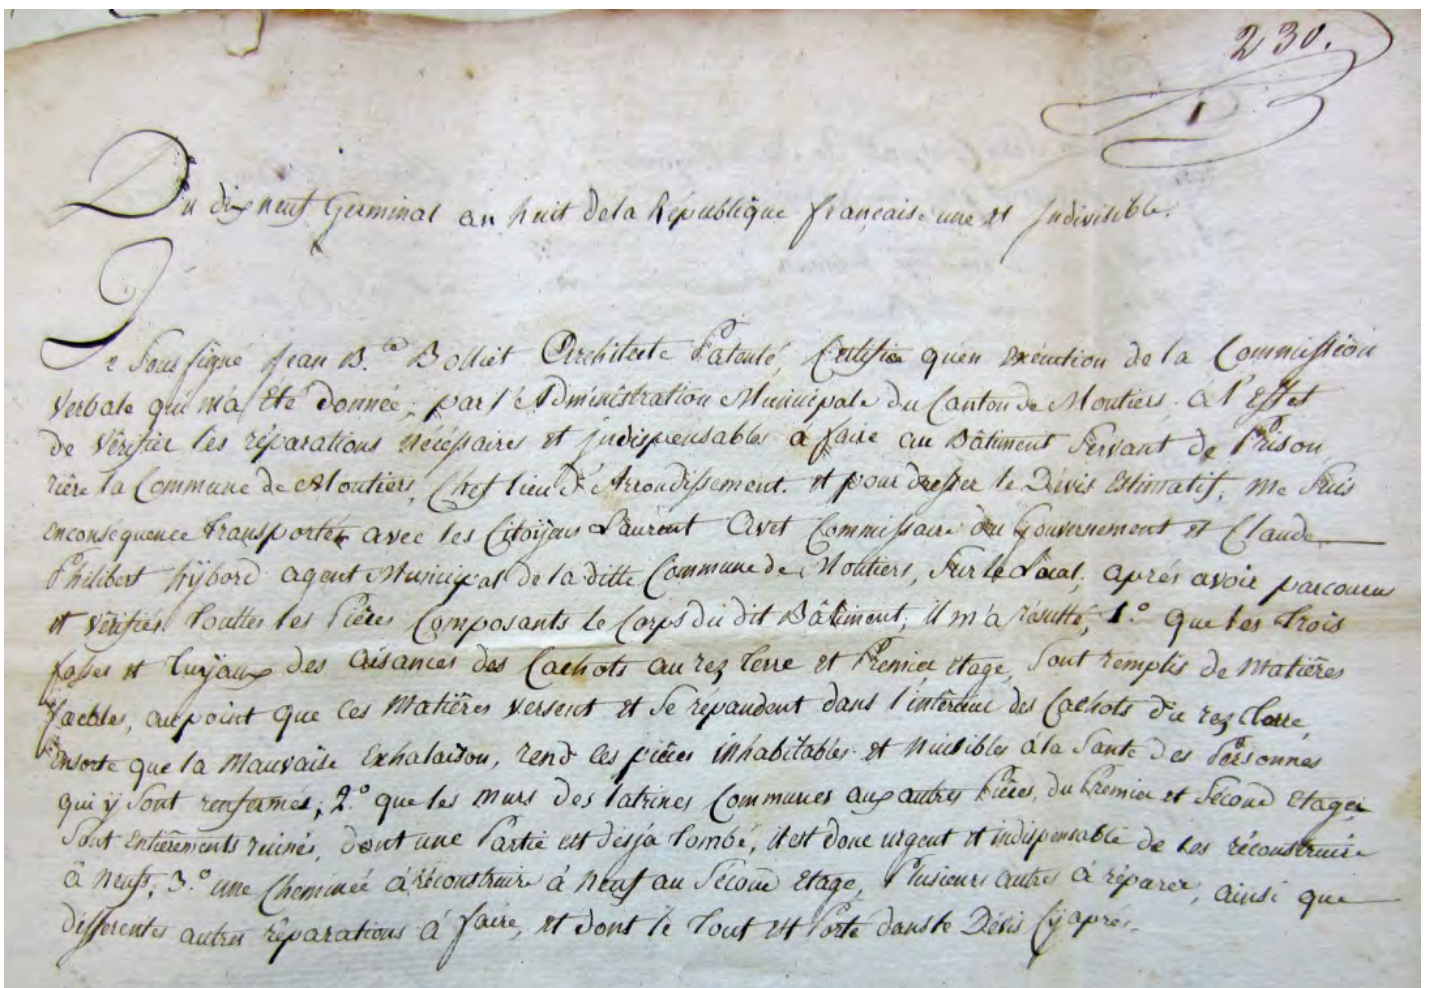 230.
1
Du dix neuf Germinal an huit de la République française une et Indivisible.
Je Soussigné Jean B.te Bolliet Architecte Patenté, Certifie qu'en exécution de la Commission
Verbale qui m'a Eté donnée, par l'Administration Municipale du Canton de Moutiers, à l'effet
de Vêrifier les réparations nécéssaires et jndispensables à faire au Bâtiment Servant de Prison
riêre la Commune de Moutiers, Chef lieu d'Arrondissement. et pour dresser le Dévis Estimatif, me Suis
enconséquence transporter avec les Citoÿens Laurent Avet Commissaire du Gouvernement et Claude
Philibert hÿbord agent Municipal de la ditte Commune de Moutiers, Sur le Local, aprés avoir parcouru
et vêrifiés touttes les Piêces Composants le Corps du dit Bâtiment, il m'a résulté, 1.° que les trois
fosses et tuÿaux des aisances des Cachots au rez terre et Premier étage, Sont remplis de Matiêres
fæcales, au point que ces Matiêres versent et Se répandent dans l'intérieur des Cachots du rez terre,
ensorte que la Mauvaise Exhalaison, rend ces piêces inhabitables et Nuisibles à la Santé des Pérsonnes
qui ÿ Sont renfermés, 2.° que les murs des latrines Communes aux autres Piêces, du Premier et Sécond Etages
Sont Entiêrements ruinés, dont une Partie est desja tombé, il est donc urgent et indispensable de les réconstruire
à Neufs, 3.° une Cheminée à réconstruire à Neuf au Sécond Etage, Plusieurs autres à réparer, ainsi que
differentes autres rêparations à faire, et dont le tout est Porté dans le Dévis Cÿ aprés.